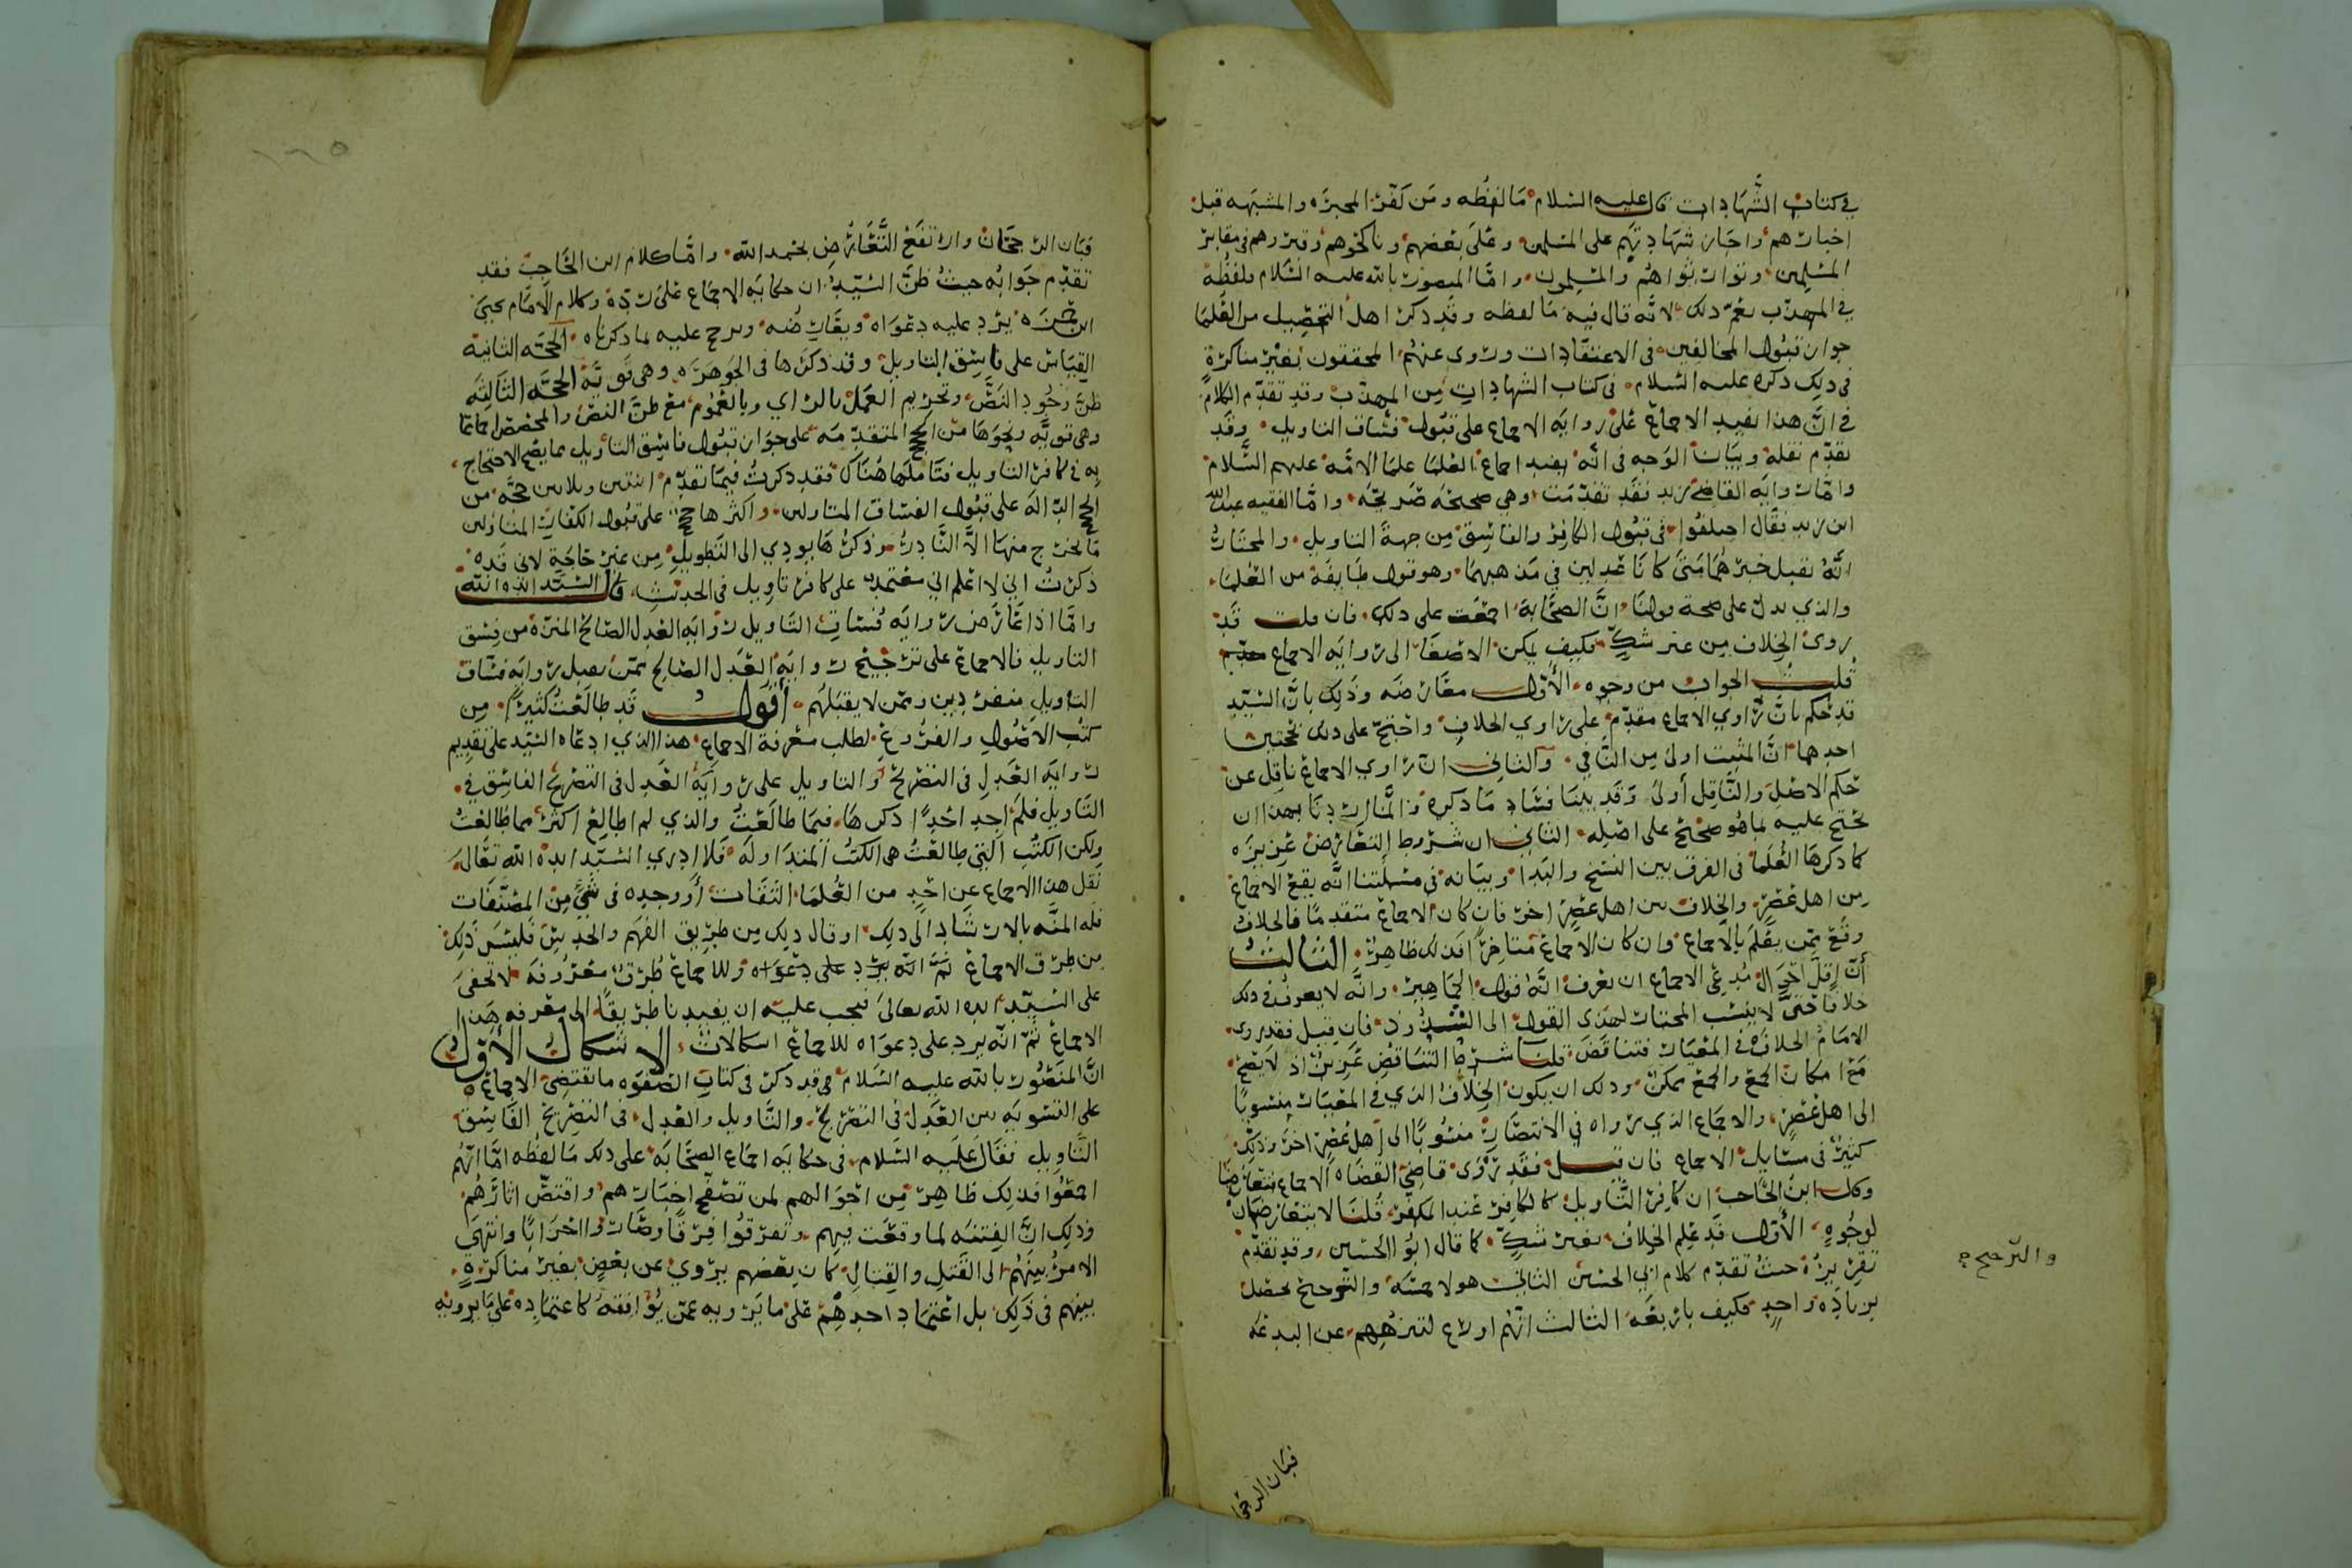 في كتاب الشهادات قال عليه السلام ما لفظه ومن كفر المجبره والمشبهه قبل
اخبارهم واجاز شهادتهم على المسلمين وعلى بعضهم وناكحوهم وقبروهم في مقابر
المسلمين وتوارثوا هم والمسلمون واما المنصور بالله عليه السلام فلفظه
في المهذب يعم ذلك لانه قال فيه ما لفظه وقد ذكر اهل التحصيل من العلما
جواز قبول المخالفين في الاعتقادات وروى عنهم المحققون بغير مناكرة
في ذلك ذكره عليه السلام في كتاب الشهادات من المهذب وقد تقدم الكلام
في ان هذا يفيد الاجماع على روايه الاجماع على قبول فساق التاويل وقد
تقدم نقله وبيان الوجه في انه يفيد اجماع العلما علما الائمه عليهم السلام
واما روايه القاضي زيد فقد تقدمت وهي صحيحه صريحه واما الفقيه عبدالله
ابن زيد فقال اختلفوا في قبول الكافر والفاسق من جهة التاويل والمختار
انه يقبل خبرهما متى كانا عدلين في مذهبهما وهو قول طايفة من العلما
والذي يدل على صحة قولنا ان الصحابة اجمعت على ذلك فان قلت قد
روى الخلاف من غير شك فكيف يمكن الاصغا الى روايه الاجماع
قلت الجواب من وجوه الأول معارضه وذلك بان السيد
قد حكم بان راوي الاجماع مقدم على راوي الخلاف واحتج على ذلك بحجتين
احدهما ان المثبت اولى من النافي والثاني ان راوي الاجماع ناقل عن
حكم الاصل والناقل أولى وقد بينا فساد ما ذكره وانما اردنا بهذا ان
نحتج عليه بما هو صحيح على اصله الثاني ان شروط التعارض عزيزه
كما ذكرها العلما في الفرق بين النسخ والبدا وبيانه في مسئلتنا انه يقع الاجماع
من اهل عصر والخلاف من اهل عصر اخر فان كان الاجماع متقدما فالخلاف
وقع ممن يعلم بالاجماع وان كان الاجماع متاخرا فذلك ظاهر الثالث
أن اقل احوال مدعي الاجماع ان يعرف انه قول الجماهير وانه لا يعرف في ذلك
خلافا حتى لا ينسب المختار لهذي القول الى الشذوذ فان قيل فقد روى
الامام الخلاف في المعيار فتناقض قلنا شرط التناقض عزيز اذ لا يصح
مع امكان الجمع والجمع ممكن وذلك ان يكون الخلاف الذي في المعيار منسوبا
الى اهل عصر والاجماع الذي رواه في الانتصار منسوبا الى أهل عصر اخر وذلك
كثير في مسايل الاجماع فان قيل فقد روى قاضي القضاه الاجماع متعارضا
وكذلك ابن الحاجب ان كافر التاويل كالكافر عند المكفر قلنا لا يتعارضان
لوجوه الأول قد علم الخلاف بغير شك كما قال ابو الحسين وقد تقدم
تقريره حيث تقدم كلام ابي الحسين الثاني هولا خمسه والترجيح يحصل
بزياده واحد فكيف باربعه الثالث انهم اورع لتنزههم عن البدعه
والترجيح
فبان الرجحان
فبان الرجحان وارتفع التعارض بحمد الله واما كلام ابن الحاجب فقد
تقدم جوابه حيث ظن السيد ان حكايه الاجماع على رده وكلام الامام يحيى
ابن حمزه يرد عليه دعواه ويعارضه ويرجح عليه بما ذكرناه الحجه الثانيه
القياس على فاسق التاويل وقد ذكرها في الجوهره وهي قويه الحجه الثالثه
ظن وجود النص وتحريم العمل بالراي وبالعموم مع ظن النص والمخصص اجماعا
وهي قويه ونحوها من الحجج المتقدمه على جواز قبول فاسق التاويل مما يصح الاحتجاج
به في كافر التاويل فتاملها هناك فقد ذكرت فيما تقدم اثنتين وثلاثين حجه من
الحجج الداله على قبول الفساق المتاولين واكثرها حجج على قبول الكفار المتاولين
ما يخرج منها الا النادر وذكرها يودي الى التطويل من غير حاجة لاني قد
ذكرت اني لا اعلم اني معتمد على كافر تاويل في الحديث قال السيد ايده الله
واما اذا عارض روايه فساق التاويل روايه العدل الصالح المنزه من فسق
التاويل فالاجماع على ترجيح روايه العدل الصالح ممن يقبل روايه فساق
التاويل منفردين وممن لا يقبلهم أقول قد طالعت كثيرا من
كتب الاصول والفروع لطلب معرفة الاجماع هذا الذي ادعاه السيد على تقديم
روايه العدل في التصريح والتاويل على روايه العدل في التصريح الفاسق في
التاويل فلم اجد احدا ذكرها فيما طالعت والذي لم اطالع اكثر مما طالعت
ولكن الكتب التي طالعت هي الكتب المتداوله فلا ادري السيد ايده الله تعالى
نقل هذا الاجماع عن احد من العلما الثقات أو وجده في شي من المصنفات
فله المنه بالارشاد الى ذلك او قال ذلك من طريق الفهم والحدس فليس ذلك
من طرق الاجماع ثم انه يرد على دعواه وللاجماع طرق معروفه لا تخفى
على السيد ايده الله تعالى فيجب عليه ان يفيدنا طريقا الى معرفه هذا
الاجماع ثم انه يرد على دعواه للاجماع اشكالات الاشكال الأول
ان المنصور بالله عليه السلام قد ذكر في كتاب الصفوه ما يقتضي الاجماع
على التسويه بين العدل في التصريح والتاويل والعدل في التصريح الفاسق
التاويل فقال عليه السلام في حكايه اجماع الصحابه على ذلك ما لفظه اما انهم
اجمعوا فذلك ظاهر من احوالهم لمن تصفح اخبارهم واقتص اثارهم
وذلك ان الفتنه لما وقعت بينهم وتفرقوا فرقا وصاروا احزابا وانتهى
الامر بينهم الى القتل والقتال كان بعضهم يروي عن بعض بغير مناكره
بينهم في ذلك بل اعتماد احدهم على ما يرويه عمن يوافقه كاعتماده على ما يرويه